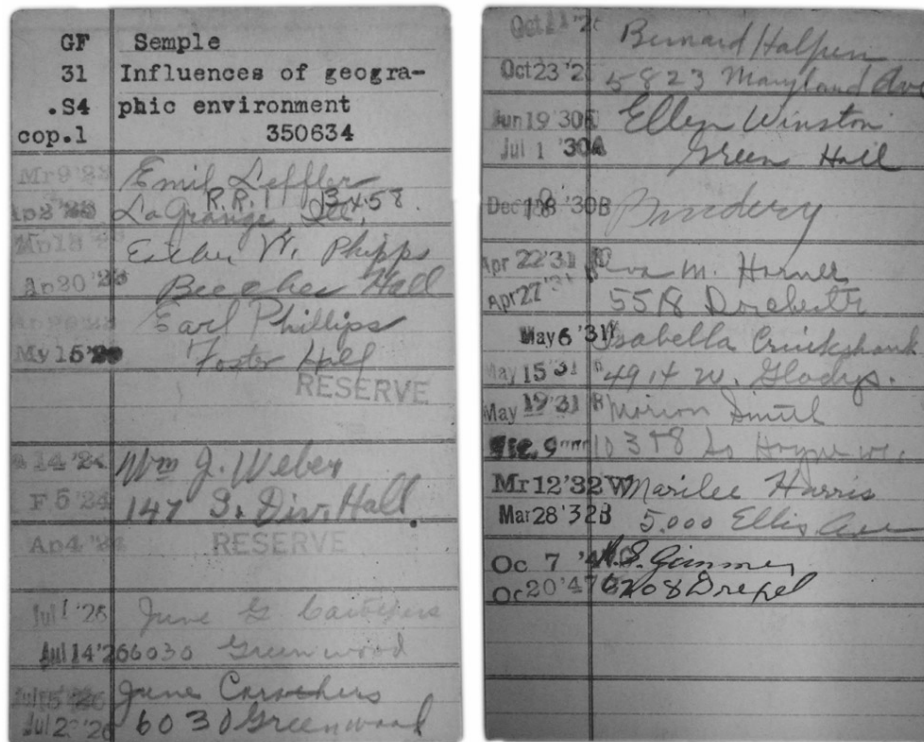 GF Semple
31 Influences of geogra-
.S4 phic environment
cop.1 350634
Mr 9 '23 Emil Leffler
R.R. 1 13458
Ap 3 '23 LaGrange Ill.
Esther W. Phipps
Ap 20 '23 Beecher Hall
Earl Phillips
My 15 '23 Foster Hall
RESERVE
14 '24 Wm J. Weber
F 5 '24 147 S. Div. Hall.
Ap 4 '24 RESERVE
Jul 1 '26 June G
Jul 14 '26 6030 Greenwood
Jul 15 '26 June Carothers
Jul 2 '26 6030 Greenwood
Oct 11 '2 Bernard Halpern
Oct 23 '2 5823 Maryland Ave
Jun 19 30 Ellen Winston
Jul 1 '30A Green Hall
Dec 18 '30B Bindery
Apr 22 '31 Eva M. Harner
Apr 27 '31 5518 Dorchester
May 6 '31 Isabella Cruikshank
May 15 31 4914 W. Gladys.
May 19 '31 Marion Smith
9 10358 So Hoyne
Mr 12 '32 W Marilee Harris
Mar 28 '32B 5.000 Ellis Ave
Oc 7 '47
Oc 20 '47 6208 Drexel